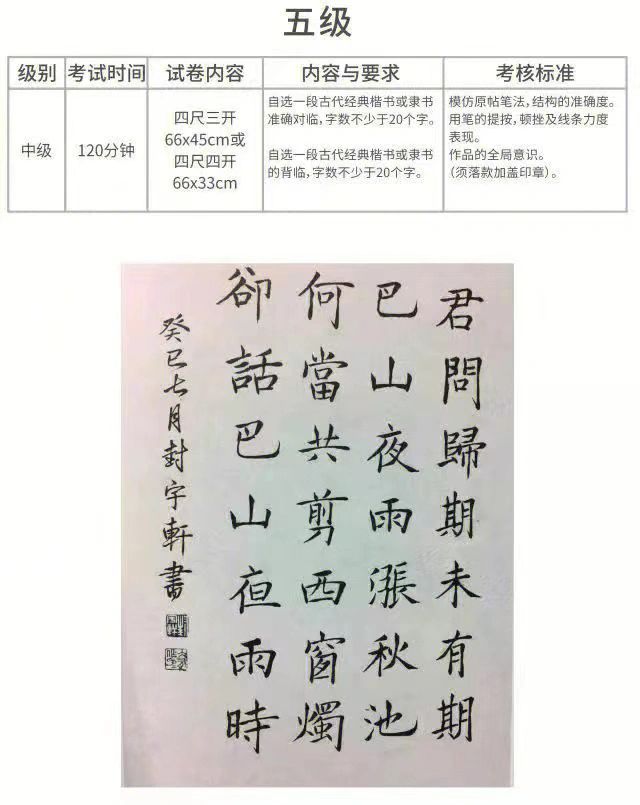 五级
级别 考试时间 试卷内容 内容与要求 考核标准
中级
120分钟
四尺三开
66x45cm或
四尺四开
66x33cm
自选一段古代经典楷书或隶书
准确对临，字数不少于20个字。
自选一段古代经典楷书或隶书
的背临，字数不少于20个字。
模仿原帖笔法，结构的准确度。
用笔的提按，顿挫及线条力度
表现。
作品的全局意识。
（须落款加盖印章）。
君問歸期未有期
巴山夜雨漲秋池
何當共剪西窗燭
卻話巴山夜雨時
癸巳七月封宇軒書